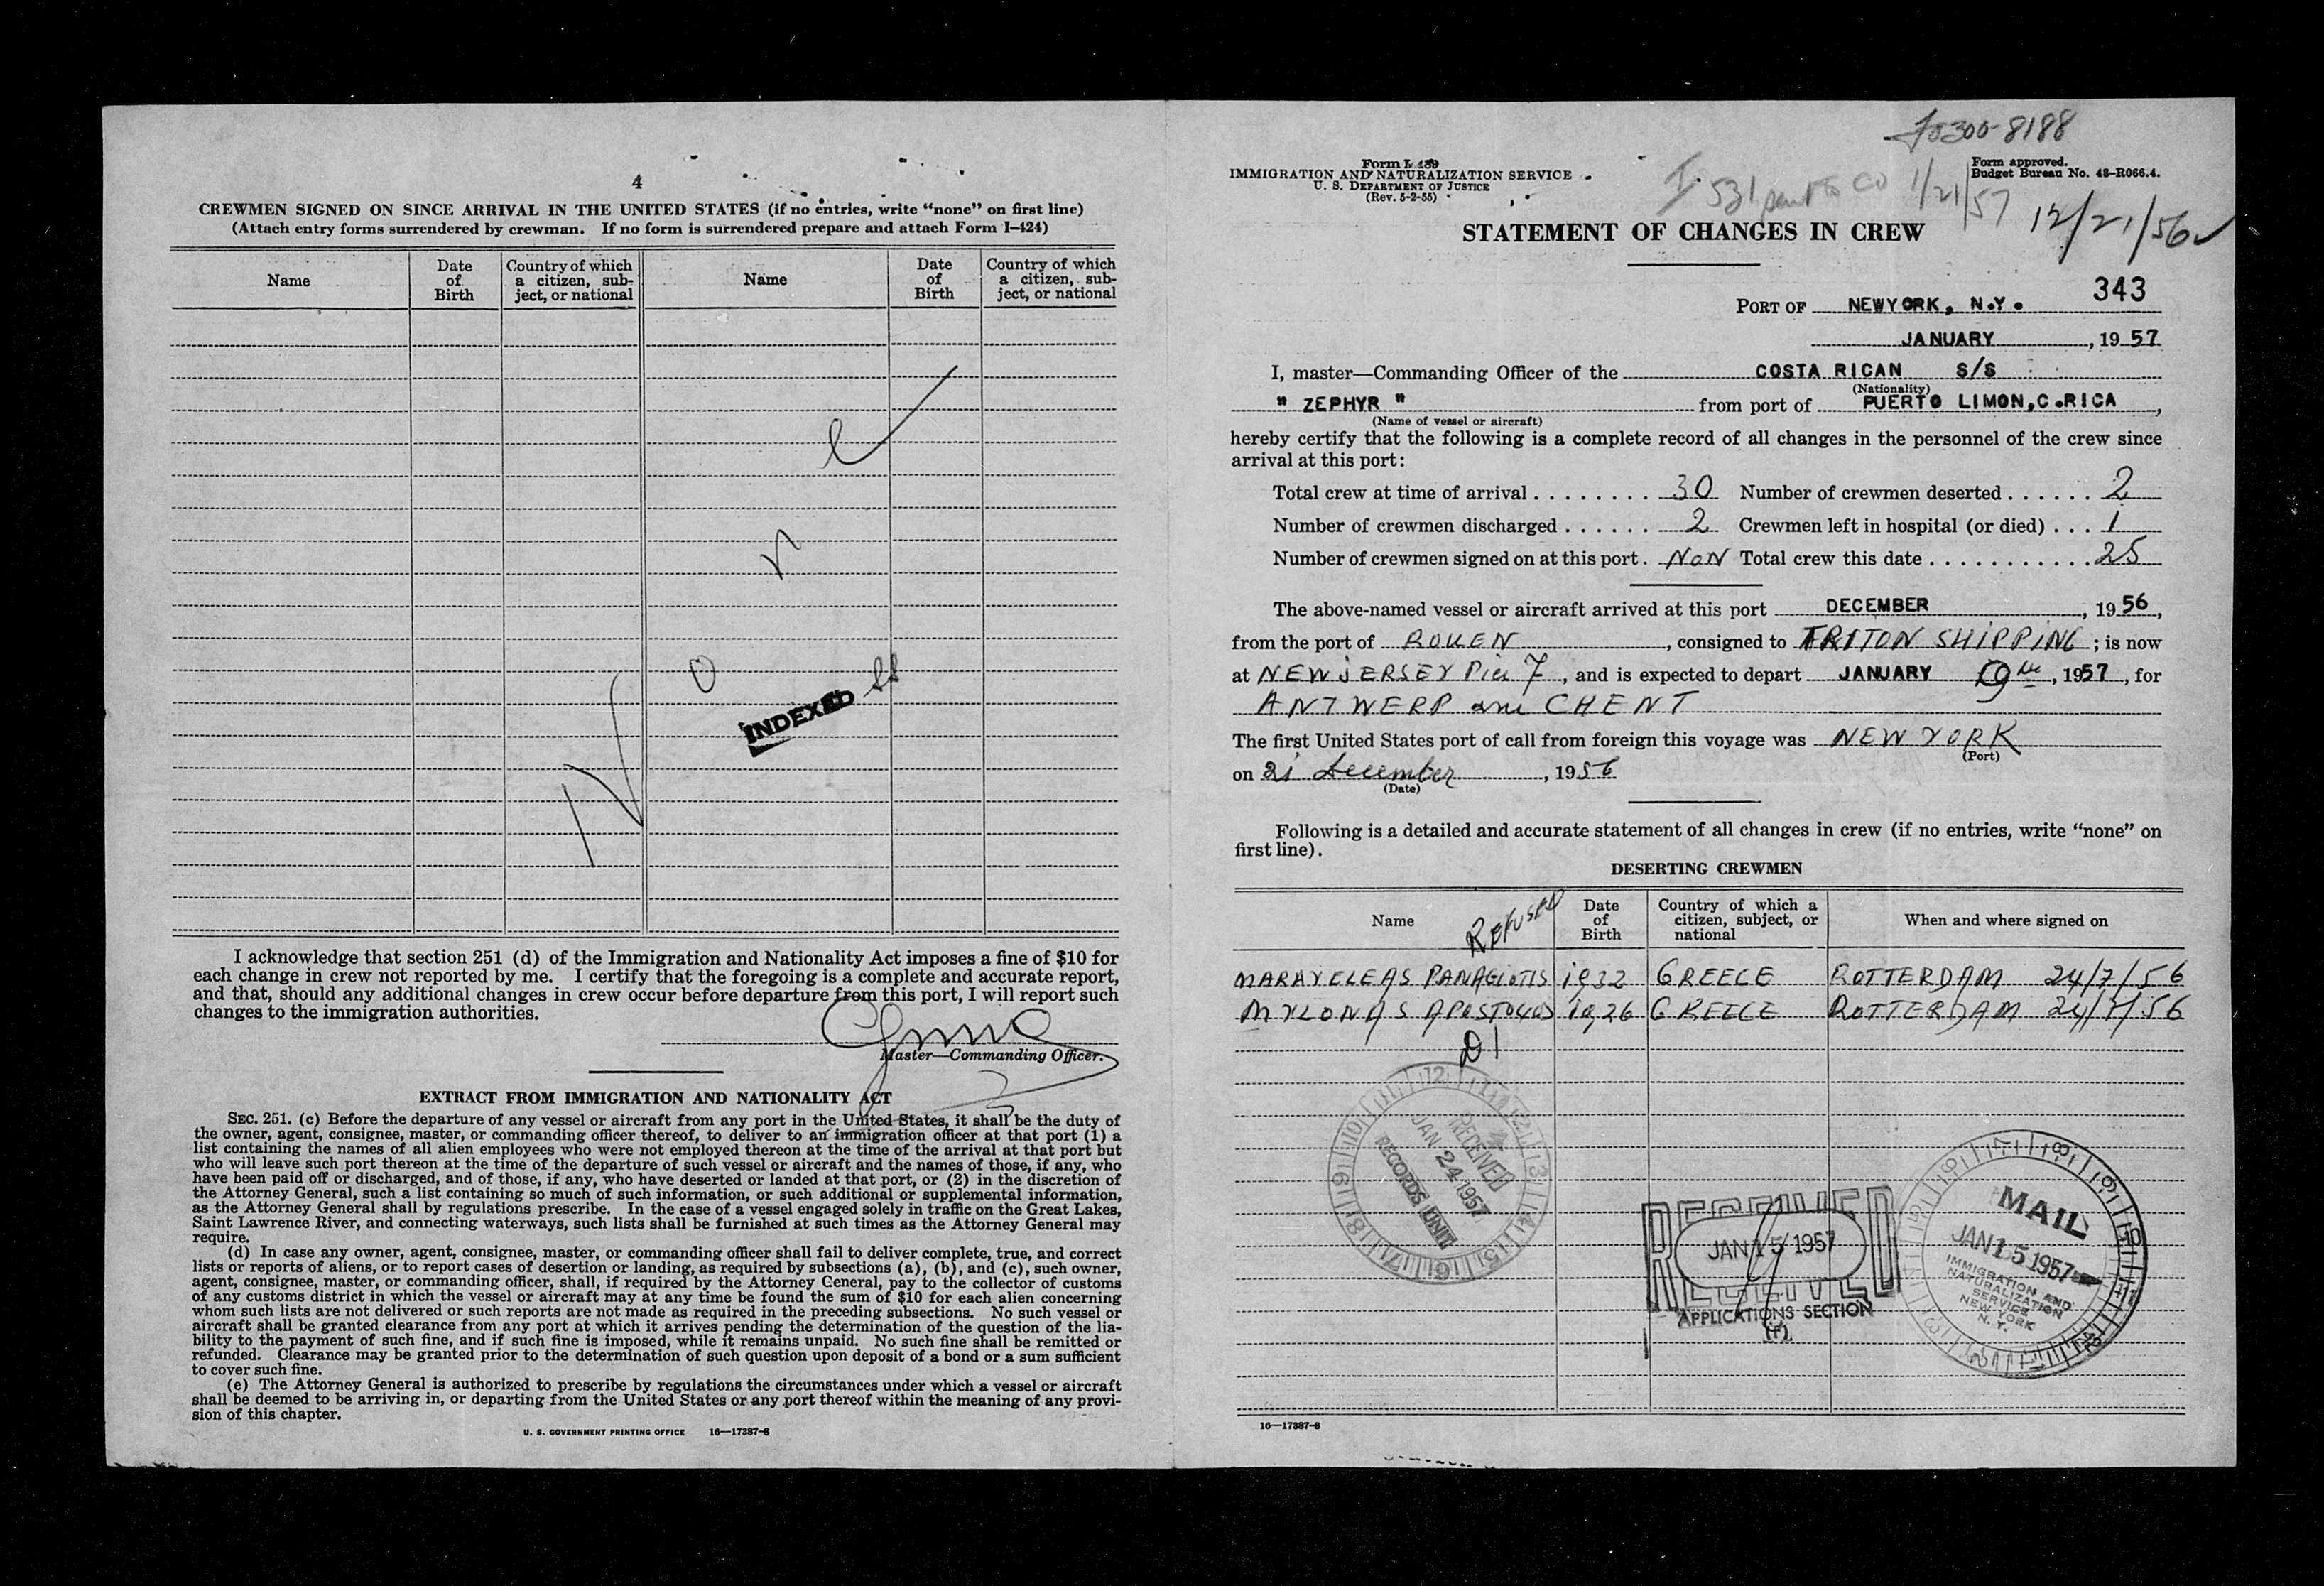 4
CREWMEN SIGNED ON SINCE ARRIVAL IN THE UNITED STATES (if no entries, write “none” on first line)
(Attach entry forms surrendered by crewman. If no form is surrendered prepare and attach Form I–424)
Name
Date of Birth
Country of which a citizen, sub- ject, or national
Name
Date of Birth
Country of which a citizen, sub- ject, or national
None
INDEXED
I acknowledge that section 251 (d) of the Immigration and Nationality Act imposes a fine of $10 for
each change in crew not reported by me. I certify that the foregoing is a complete and accurate report,
and that, should any additional changes in crew occur before departure from this port, I will report such
changes to the immigration authorities.
Master—Commanding Officer.
EXTRACT FROM IMMIGRATION AND NATIONALITY ACT
SEC. 251. (c) Before the departure of any vessel or aircraft from any port in the United States, it shall be the duty of
the owner, agent, consignee, master, or commanding officer thereof, to deliver to an immigration officer at that port (1) a
list containing the names of all alien employees who were not employed thereon at the time of the arrival at that port but
who will leave such port thereon at the time of the departure of such vessel or aircraft and the names of those, if any, who
have been paid off or discharged, and of those, if any, who have deserted or landed at that port, or (2) in the discretion of
the Attorney General, such a list containing so much of such information, or such additional or supplemental information,
as the Attorney General shall by regulations prescribe. In the case of a vessel engaged solely in traffic on the Great Lakes,
Saint Lawrence River, and connecting waterways, such lists shall be furnished at such times as the Attorney General may
require.
(d) In case any owner, agent, consignee, master, or commanding officer shall fail to deliver complete, true, and correct
lists or reports of aliens, or to report cases of desertion or landing, as required by subsections (a), (b), and (c), such owner,
agent, consignee, master, or commanding officer, shall, if required by the Attorney General, pay to the collector of customs
of any customs district in which the vessel or aircraft may at any time be found the sum of $10 for each alien concerning
whom such lists are not delivered or such reports are not made as required in the preceding subsections. No such vessel or
aircraft shall be granted clearance from any port at which it arrives pending the determination of the question of the lia-
bility to the payment of such fine, and if such fine is imposed, while it remains unpaid. No such fine shall be remitted or
refunded. Clearance may be granted prior to the determination of such question upon deposit of a bond or a sum sufficient
to cover such fine.
(e) The Attorney General is authorized to prescribe by regulations the circumstances under which a vessel or aircraft
shall be deemed to be arriving in, or departing from the United States or any port thereof within the meaning of any provi-
sion of this chapter.
U. S. GOVERNMENT PRINTING OFFICE 16—17387-8
300-8188
Form I-489
IMMIGRATION AND NATURALIZATION SERVICE
U. S. DEPARTMENT OF JUSTICE
(Rev. 5-2-55)
Form approved.
Budget Bureau No. 43-R066.4.
I 531 sent to CO 1/21/57
12/21/56
STATEMENT OF CHANGES IN CREW
343
PORT OF NEWYORK, N.Y.
JANUARY, 1957
I, master—Commanding Officer of the COSTA RICAN S/S
(Nationality)
" ZEPHYR " from port of PUERTO LIMON,C.RICA,
(Name of vessel or aircraft)
hereby certify that the following is a complete record of all changes in the personnel of the crew since
arrival at this port:
Total crew at time of arrival . . . . . . . . 30 Number of crewmen deserted . . . . . . 2
Number of crewmen discharged . . . . . . 2 Crewmen left in hospital (or died) . . . 1
Number of crewmen signed on at this port . NoN Total crew this date . . . . . . . . . . . 25
The above-named vessel or aircraft arrived at this port DECEMBER, 1956,
from the port of ROUEN, consigned to TRITON SHIPPING; is now
at NEW JERSEY Pier 7, and is expected to depart JANUARY 19th, 1957, for
ANTWERP and CHENT
The first United States port of call from foreign this voyage was NEW YORK
(Port)
on 21 December, 1956
(Date)
Following is a detailed and accurate statement of all changes in crew (if no entries, write “none” on
first line).
DESERTING CREWMEN
Name
REFUSED
Date of Birth
Country of which a citizen, subject, or national
When and where signed on
MARAVELEAS PANAGIOTIS 1932 GREECE ROTTERDAM 24/7/56
MYLONAS APOSTOLOS 1926 GREECE ROTTERDAM 24/7/56
D1
RECEIVED
JAN 24 1957
RECORDS UNIT
RECEIVED
JAN 15 1957
APPLICATIONS SECTION
MAIL
JAN 15 1957
IMMIGRATION AND
NATURALIZATION
SERVICE
NEW YORK
N. Y.
16—17387-8